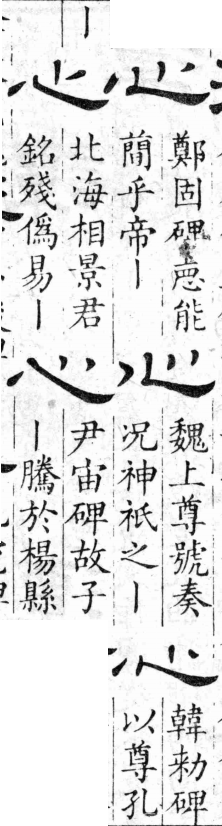 心
鄭固碑忠能
簡乎帝丨
心
魏上尊號奏
况神祇之丨
心
韓勑碑
以尊孔
丨
心
北海相景君
銘殘偽易丨
心
尹宙碑故子
丨騰於楊縣